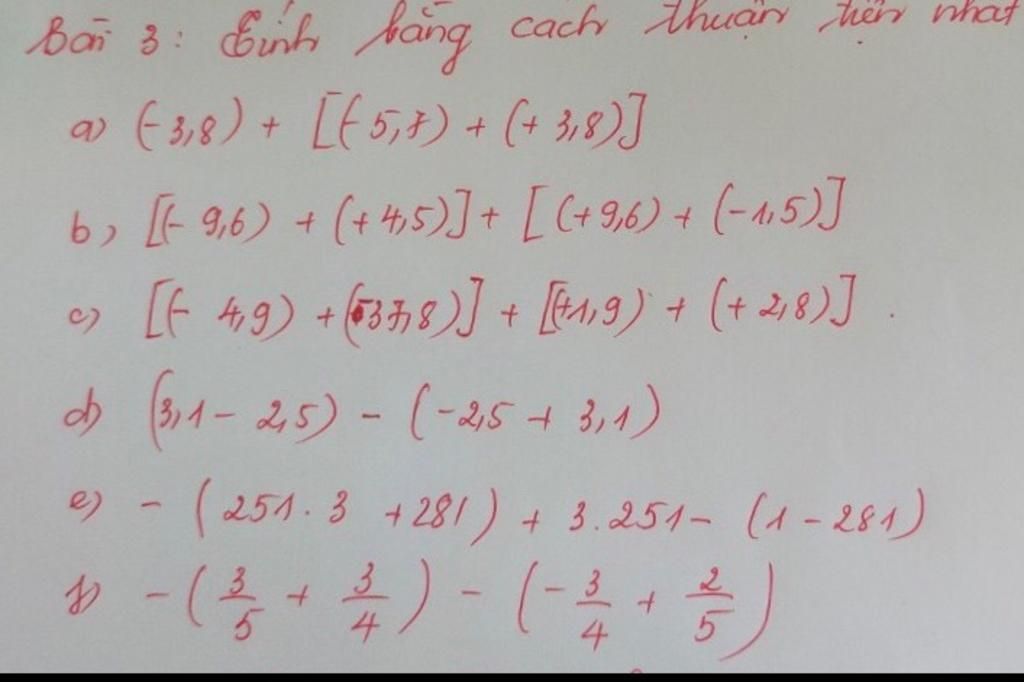 Bài 3: Tính bằng cách thuận tiện nhất
a) (-3,8) + [(-5,7) + (+3,8)]
b) [(-9,6) + (+4,5)] + [(+9,6) + (-1,5)]
c) [(-4,9) + (-37,8)] + [(+1,9) + (+2,8)].
d) (3,1 - 2,5) - (-2,5 + 3,1)
e) - (251.3 + 281) + 3.251 - (1 - 281)
f) - (3/5 + 3/4) - (-3/4 + 2/5)